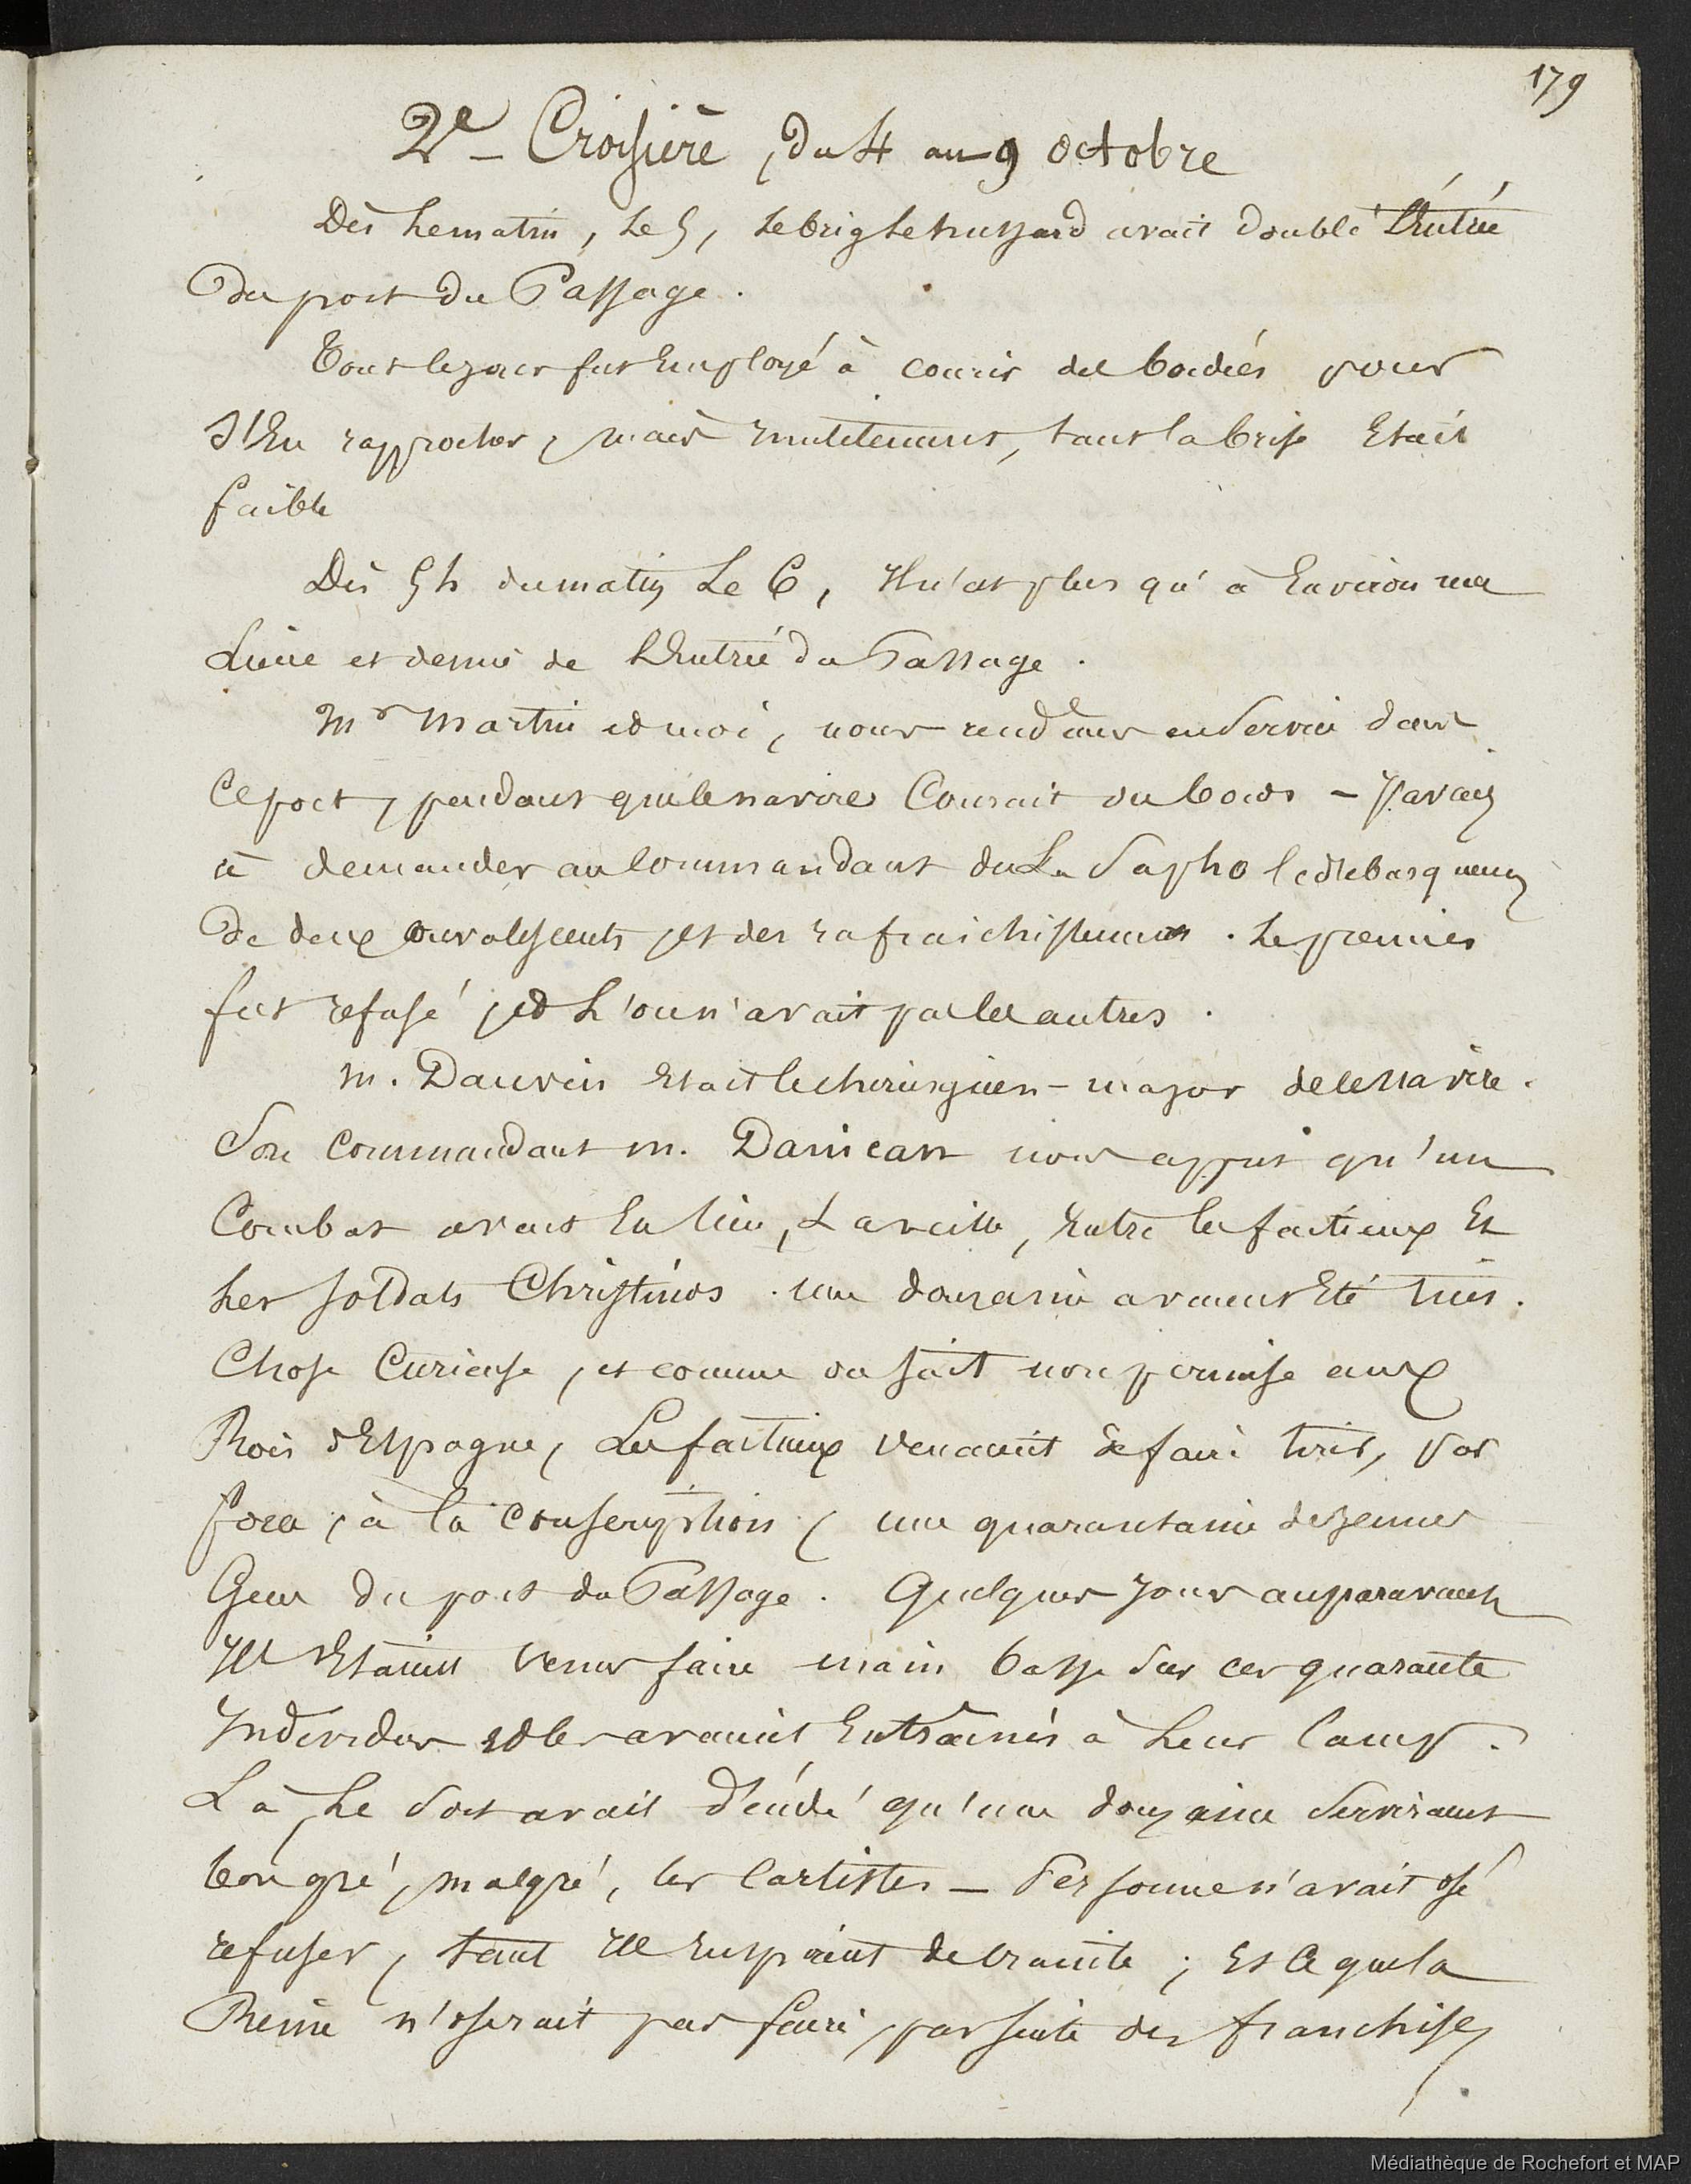 179
2e - Croisière, du 4 au 9 octobre
Dès le matin, le 5, le brig le hussard avait doublé l'Entrée
du port du Passage.
Tout le jour fut Employé à courir des bordées pour
s'En rapprocher, mais inutilement, tant la brise Etait
faible
Dès 5h du matin Le 6, Il n'est plus qu'à Environ une
Lieue et demie de l'Entrée du Passage.
Mr Martin et moi, nous rendîmes en Service dans
ce port, pendant que le navire Courait un bord - J'avais
à demander au Commandant de La Sapho le débarquement
De deux convalescents, et des rafraichissements. Le premier
fut refusé, et L'on n'avait pas les autres.
M. Dauvin Etait le chirurgien-major de ce navire.
Son Commandant M. Danican nous apprit qu'un
Combat avait Eu lieu, La veille, Entre les factieux Et
Les soldats Christinos. une douzaine avaient Eté tués.
Chose Curieuse, et comme on sait non permise aux
Rois d'Espagne, Les factieux venaient de faire tirer, par
force, à la conscription, une quarantaine de jeunes
Gens du port du Passage. Quelques jours auparavant
Ils Etaient venus faire main basse sur ces quarante
Individus et les avaient Entrâinés à Leur Camp.
Là, Le Sort avait décidé qu'une douzaine Serviraient
bon gré, malgré, les Carlistes - Personne n'avait osé
refuser, tant Ils Inspirent de crainte; Et Ce que la
Reine n'oserait pas faire, par suite des franchises,
Médiathèque de Rochefort et MAP